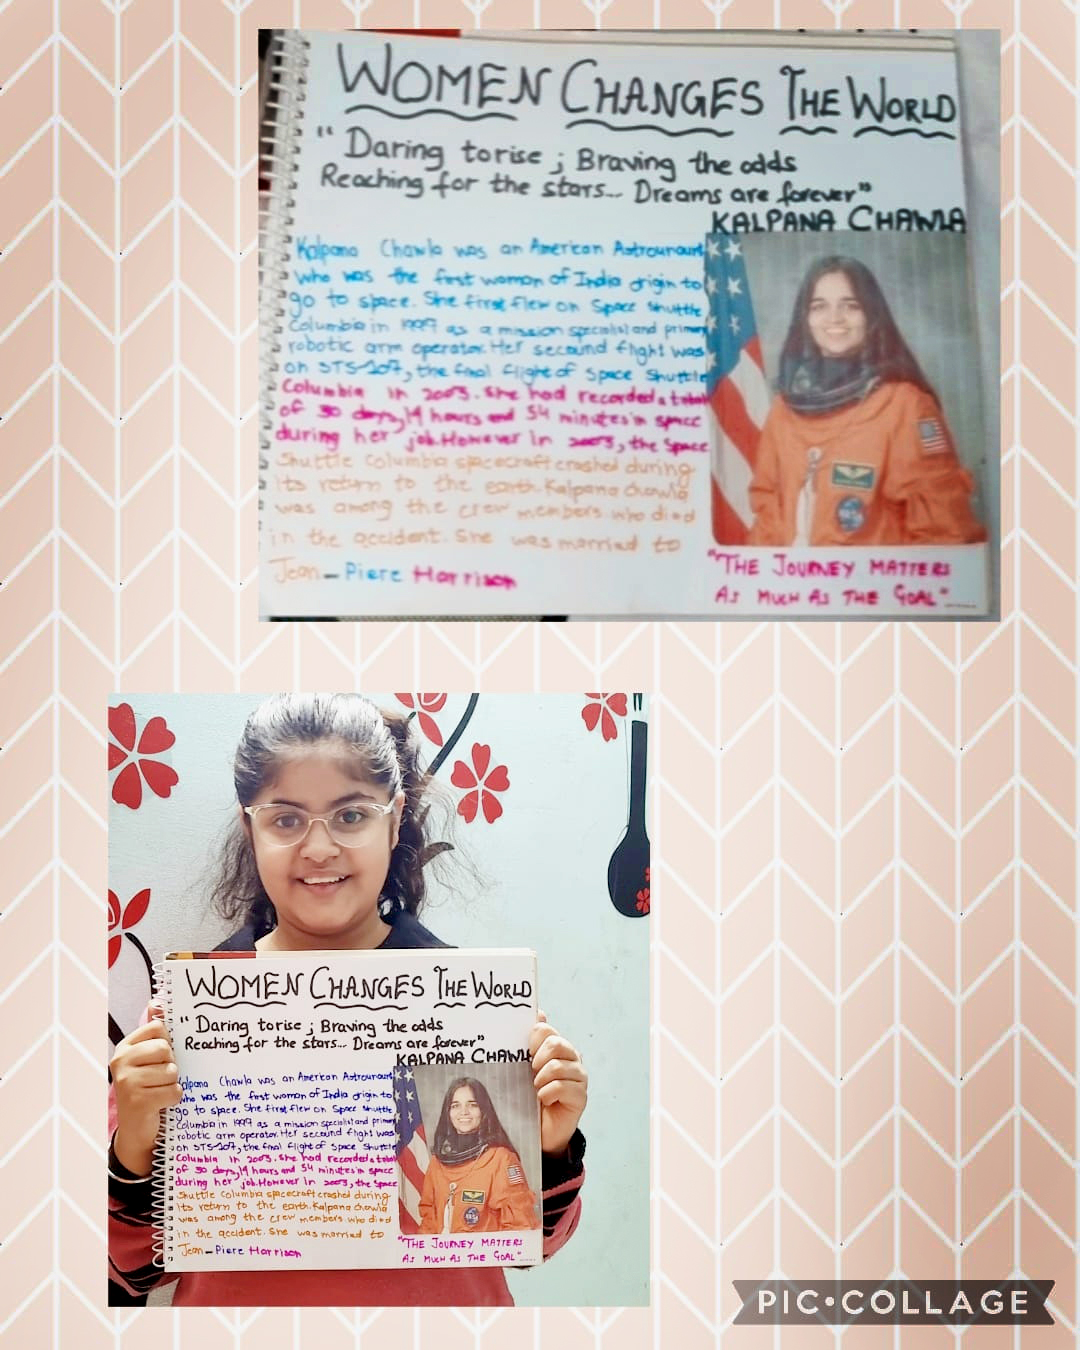 WOMEN CHANGES THE WORLD
"Daring to rise ; Braving the odds
Reaching for the stars... Dreams are forever"
KALPANA CHAWLA
Kalpana Chawla was an American Astrounaunt
who was the first woman of India origin to
go to space. She first flew on Space Shuttle
Columbia in 1997 as a mission specialist and primary
robotic arm operator. Her secound flight was
on STS-107, the final flight of Space Shuttle
Columbia in 2003. She had recorded a total
of 30 days, 14 hours and 54 minutes in space
during her job. However In 2003, the Space
Shuttle Columbia spacecraft crashed during
its return to the earth. Kalpana Chawla
was among the crew members who died
in the accident. She was married to
Jean-Piere Harrison
"THE JOURNEY MATTERS
AS MUCH AS THE GOAL"
WOMEN CHANGES THE WORLD
"Daring to rise ; Braving the odds
Reaching for the stars... Dreams are forever"
KALPANA CHAWLA
Kalpana Chawla was an American Astrounaunt
who was the first woman of India origin to
go to space. She first flew on Space Shuttle
Columbia in 1997 as a mission specialist and primary
robotic arm operator. Her secound flight was
on STS-107, the final flight of Space Shuttle
Columbia in 2003. She had recorded a total
of 30 days, 14 hours and 54 minutes in space
during her job. However In 2003, the Space
Shuttle Columbia spacecraft crashed during
its return to the earth. Kalpana Chawla
was among the crew members who died
in the accident. She was married to
Jean-Piere Harrison
"THE JOURNEY MATTERS
AS MUCH AS THE GOAL"
PIC•COLLAGE